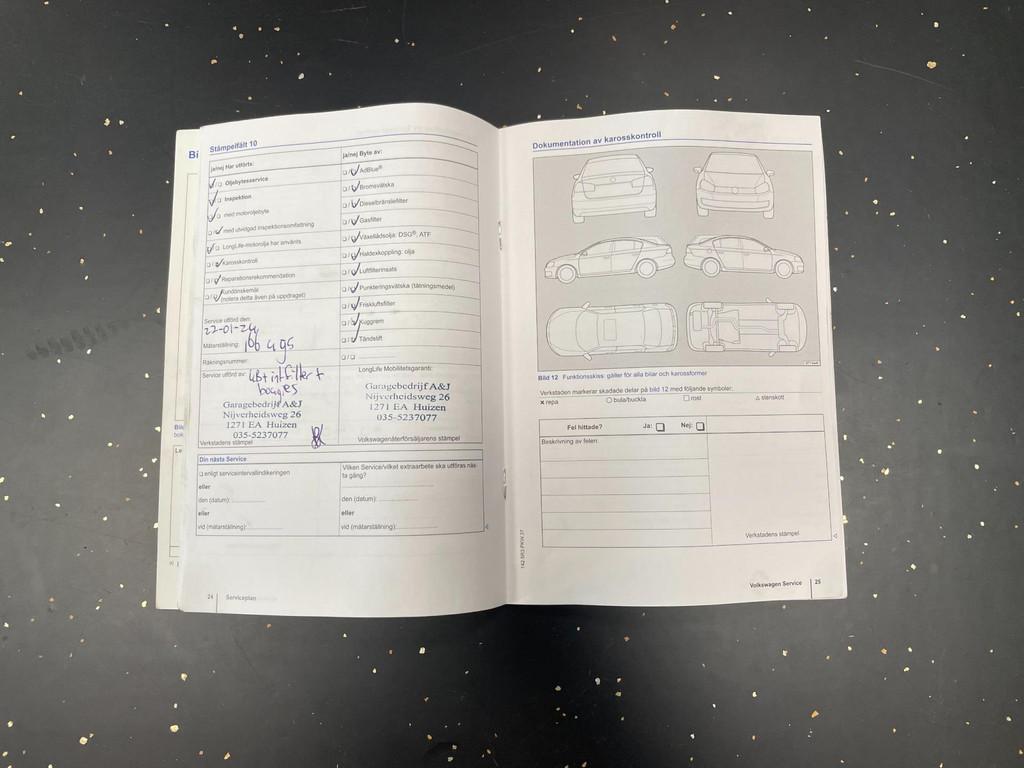 Bi
Stämpelfält 10
ja/nej Har utförts:
Oljebytesservice
Inspektion
med motoroljebyte
med utvidgad inspektionsomfattning
LongLife-motorolja har använts
Karosskontroll
Reparationsrekommendation
Kundönskemål
(notera detta även på uppdraget)
Service utförd den:
22-01-24
Mätarställning:
Räkningsnummer:
Service utförd av:
Garagebedrijf A&J
Nijverheidsweg 26
1271 EA Huizen
035-5237077
Verkstadens stämpel
ja/nej Byte av:
AdBlue®
Bromsvätska
Dieselbränslefilter
Gasfilter
Växellådsolja: DSG®, ATF
Haldexkoppling: olja
Luftfilterinsats
Punkteringsvätska (tätningsmedel)
Friskluftsfilter
Kuggrem
Tändstift
LongLife Mobilitetsgaranti:
Garagebedrijf A&J
Nijverheidsweg 26
1271 EA Huizen
035-5237077
Volkswagenåterförsäljarens stämpel
Din nästa Service
enligt serviceintervallindikeringen
eller
den (datum):
eller
vid (mätarställning):
Vilken Service/vilket extraarbete ska utföras näs-
ta gång?
den (datum):
eller
vid (mätarställning):
24 Serviceplan
Dokumentation av karosskontroll
Bild 12 Funktionsskiss: gäller för alla bilar och karossformer
Verkstaden markerar skadade delar på bild 12 med följande symboler:
x repa
bula/buckla
rost
stenskott
Fel hittade? Ja: Nej:
Beskrivning av felen:
Verkstadens stämpel
142.5R3.PKW.37
Volkswagen Service 25